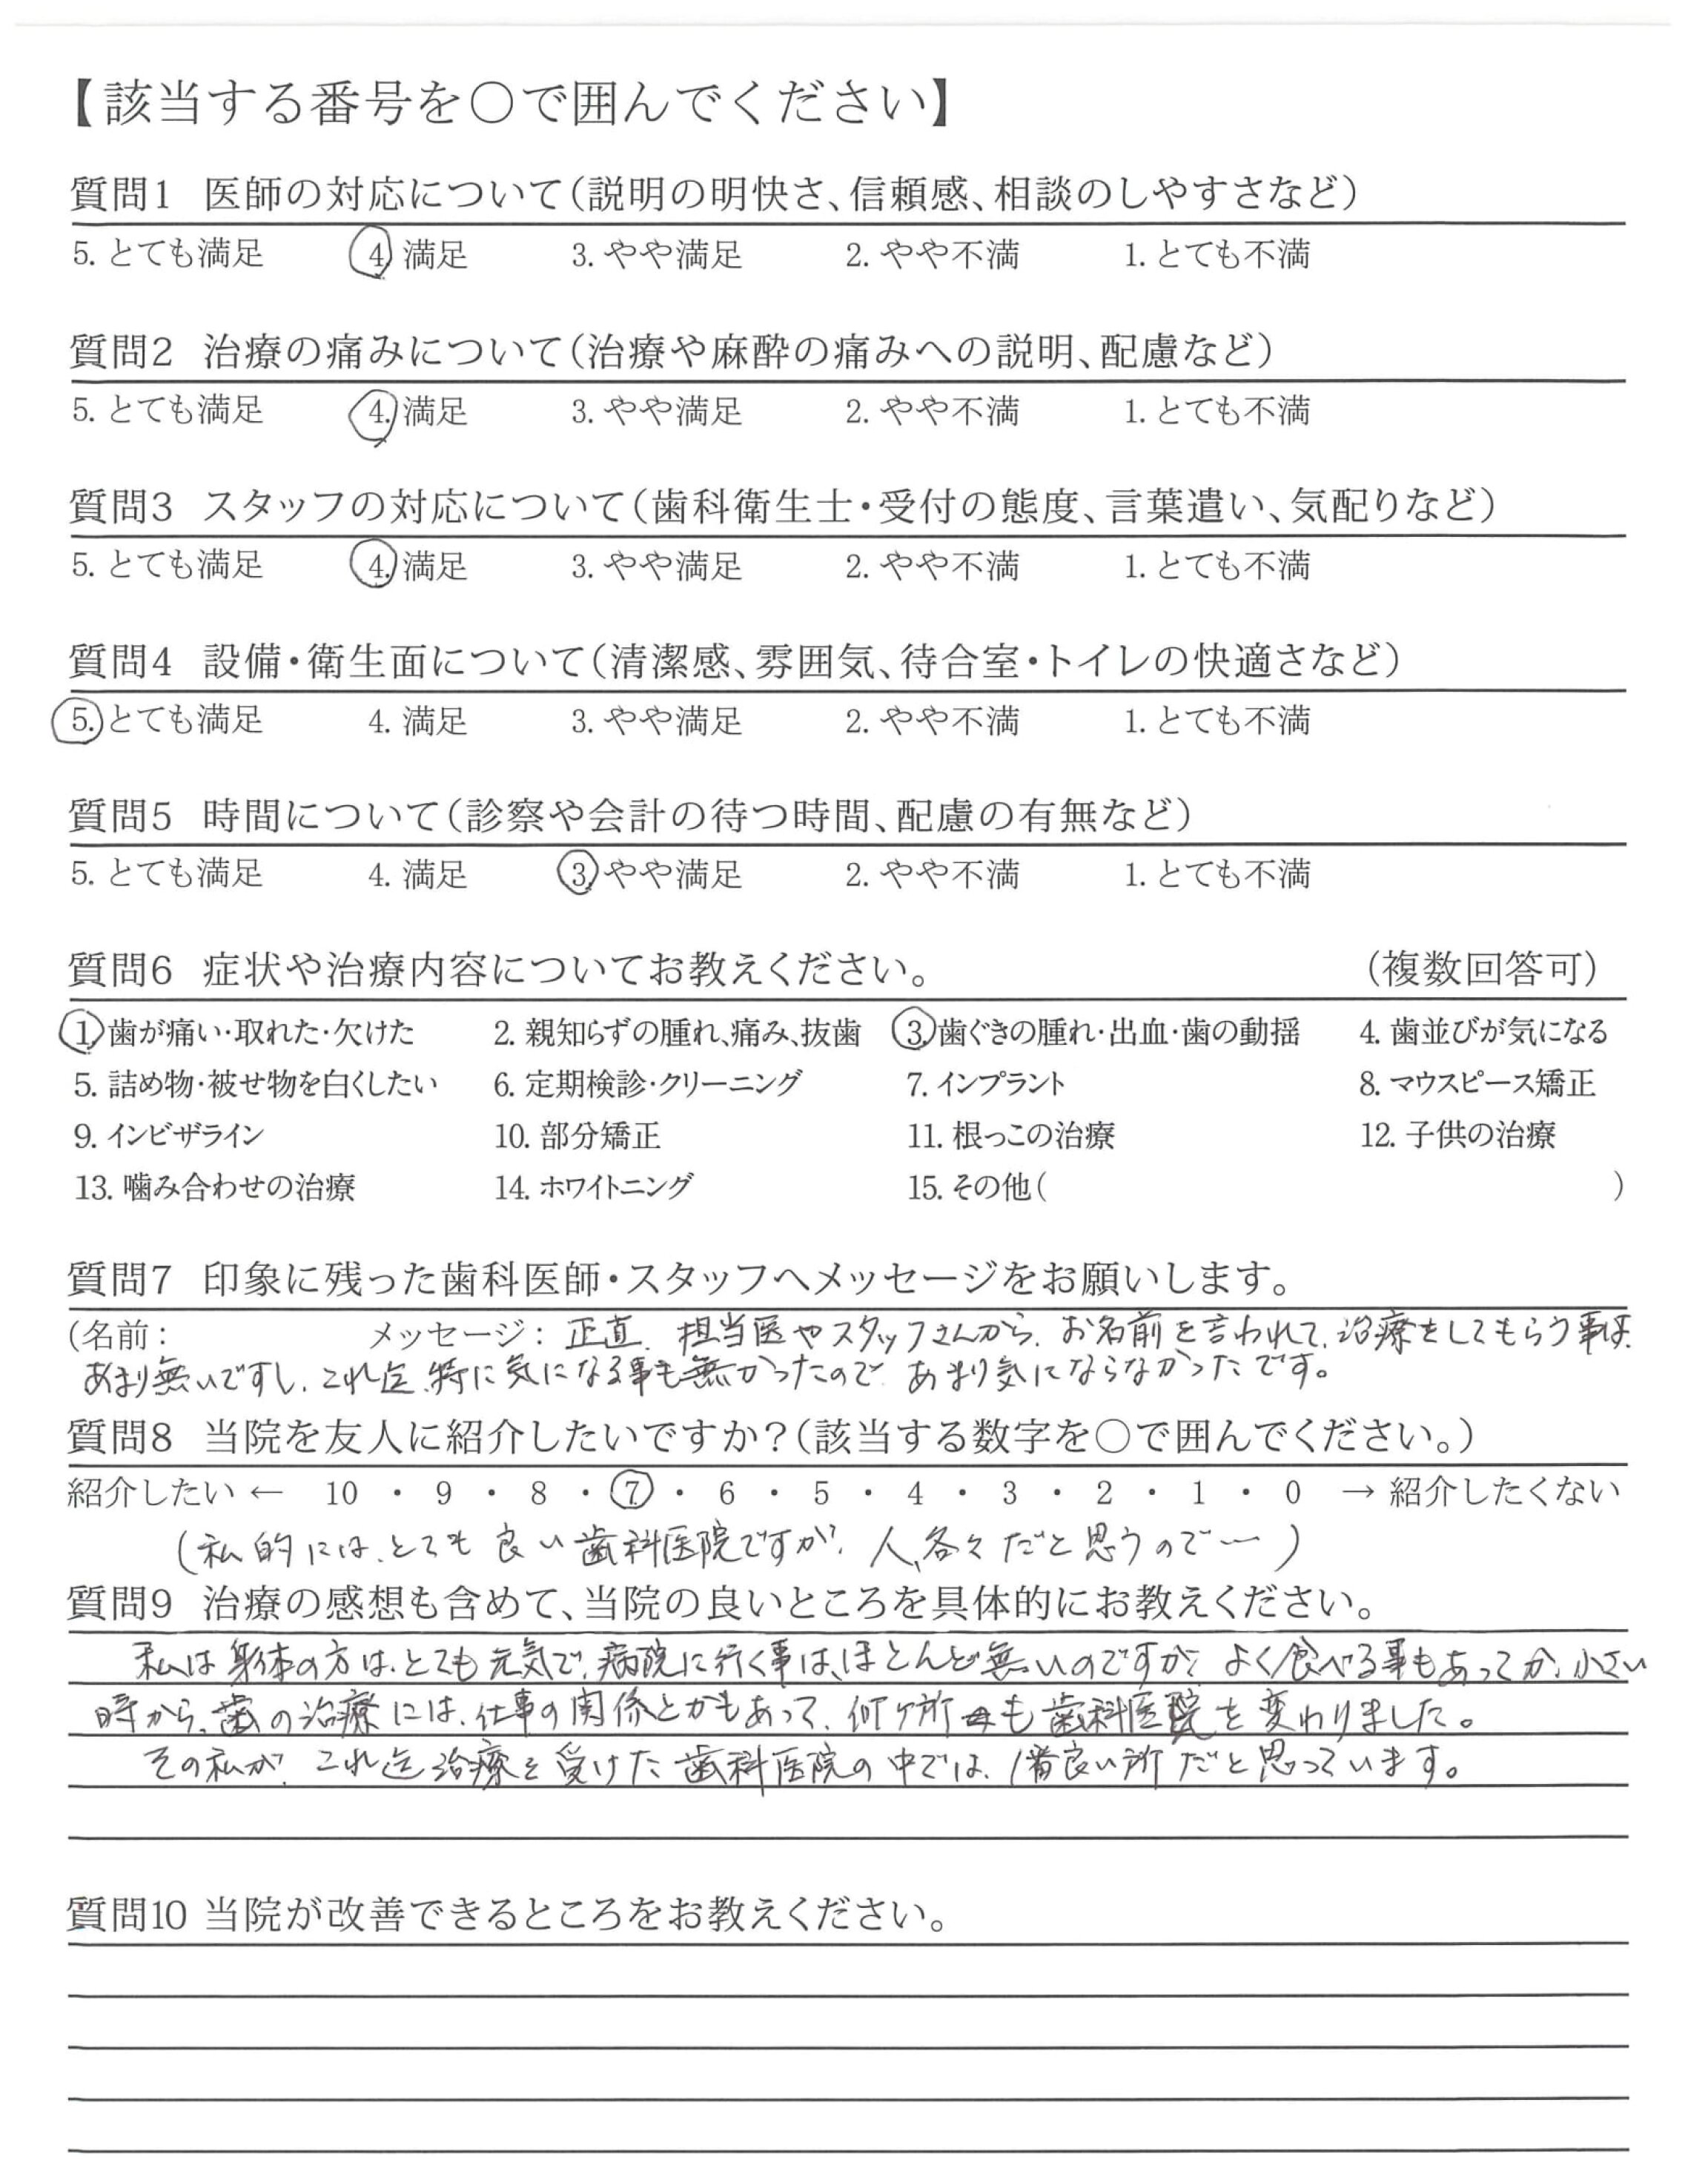 【該当する番号を〇で囲んでください】
質問1 医師の対応について(説明の明快さ、信頼感、相談のしやすさなど)
5. とても満足 4. 満足 3. やや満足 2. やや不満 1. とても不満
質問2 治療の痛みについて(治療や麻酔の痛みへの説明、配慮など)
5. とても満足 4. 満足 3. やや満足 2. やや不満 1. とても不満
質問3 スタッフの対応について(歯科衛生士・受付の態度、言葉遣い、気配りなど)
5. とても満足 4. 満足 3. やや満足 2. やや不満 1. とても不満
質問4 設備・衛生面について(清潔感、雰囲気、待合室・トイレの快適さなど)
5. とても満足 4. 満足 3. やや満足 2. やや不満 1. とても不満
質問5 時間について(診察や会計の待つ時間、配慮の有無など)
5. とても満足 4. 満足 3. やや満足 2. やや不満 1. とても不満
質問6 症状や治療内容についてお教えください。 (複数回答可)
1. 歯が痛い・取れた・欠けた 2. 親知らずの腫れ、痛み、抜歯 3. 歯ぐきの腫れ・出血・歯の動揺 4. 歯並びが気になる
5. 詰め物・被せ物を白くしたい 6. 定期検診・クリーニング 7. インプラント 8. マウスピース矯正
9. インビザライン 10. 部分矯正 11. 根っこの治療 12. 子供の治療
13. 噛み合わせの治療 14. ホワイトニング 15. その他( )
質問7 印象に残った歯科医師・スタッフへメッセージをお願いします。
(名前: メッセージ: 正直、担当医やスタッフさんから、お名前を言われて、治療をしてもらう事は、
あまり無いですし、これ迄、特に気になる事も無かったので、あまり気にならなかったです。
質問8 当院を友人に紹介したいですか?(該当する数字を〇で囲んでください。)
紹介したい ← 10 ・ 9 ・ 8 ・ 7 ・ 6 ・ 5 ・ 4 ・ 3 ・ 2 ・ 1 ・ 0 → 紹介したくない
(私的には、とても良い歯科医院ですが、人、各々だと思うので…)
質問9 治療の感想も含めて、当院の良いところを具体的にお教えください。
私は身体の方は、とても元気で、病院に行く事は、ほとんど無いのですが、よく食べる事もあってか、小さい
時から、歯の治療には、仕事の関係とかもあって、何ヶ所も歯科医院を変わりました。
その私が、これ迄治療を受けた歯科医院の中では、1番良い所だと思っています。
質問10 当院が改善できるところをお教えください。